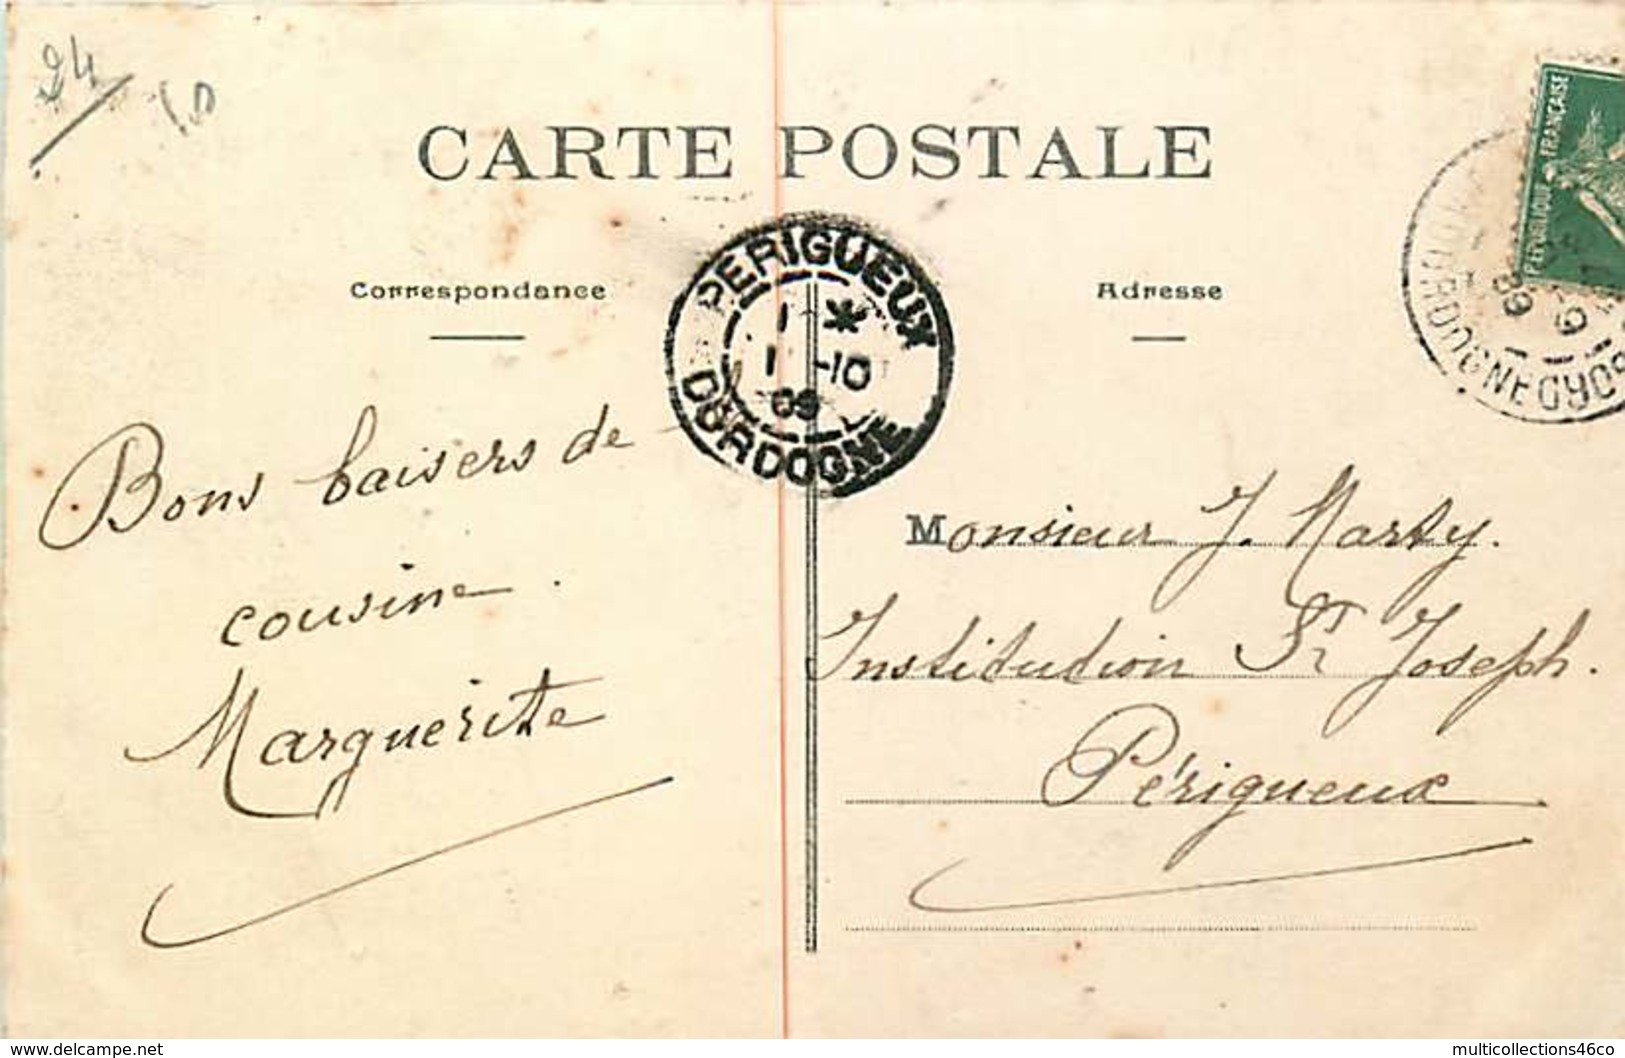 24
CARTE POSTALE
RÉPUBLIQUE FRANÇAISE
Correspondance
Adresse
PERIGUEUX
1 *
1 -10
09
DORDOGNE
DORDOGNE
Bons baisers de
cousine.
Marguerite
Monsieur J. Marty.
Institution St Joseph.
Périgueux
www.delcampe.net
multicollections46co